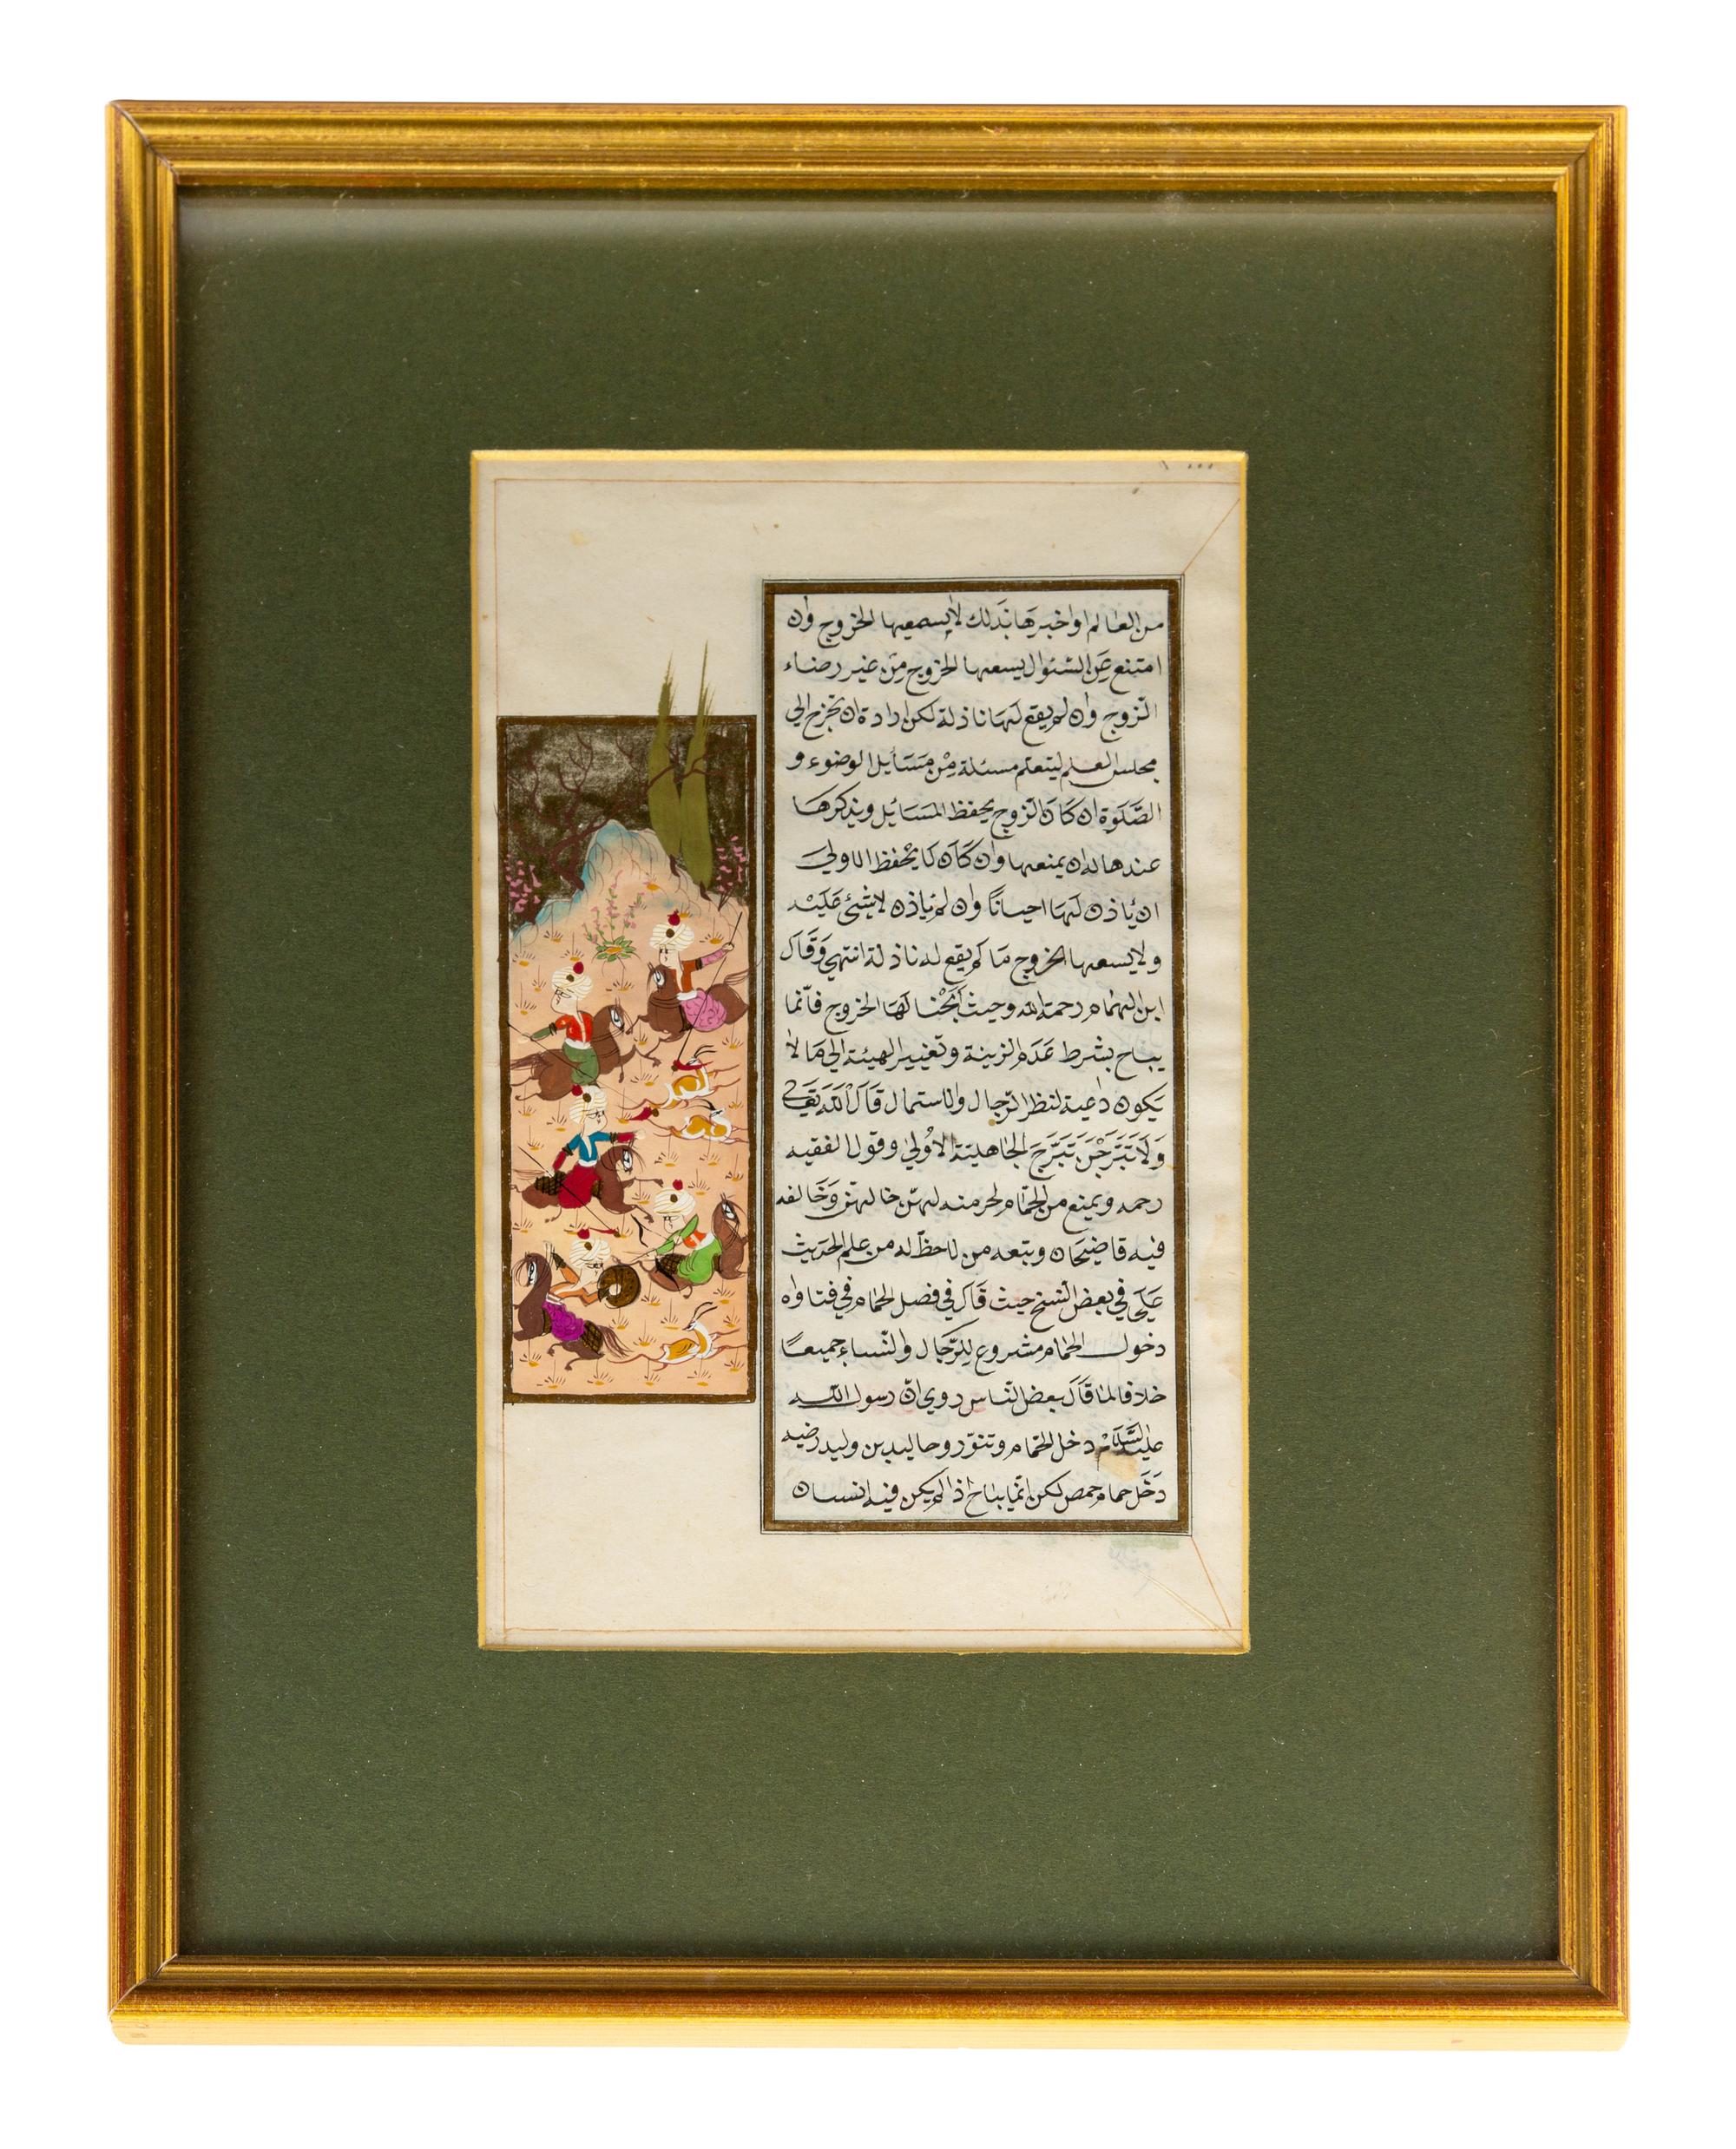 من العالم او اخبرها بذلك لا يسمعها الخروج وان
امتنع عن السئوال يسعها الخروج من غير رضاء
الزوج وان لم يقع لها نازلة لكن ارادة ان تخرج الى
مجلس العلم ليتعلم مسئلة من مسَائل الوضوء و
الصَّلوة ان كَانَ الزوج يحفظ المسَائل ويذكرها
عندها له ان يمنعها وان كَان لا يحْفظ الاولى
ان يأذن لها احياناً وان لم يأذن لا شئ عَليْه
ولا يسعها الخروج مَا لم يقع له نازلة انتهى وَقَال
ابن الهمام رحمة الله وحيث ابَحْنا لهَا الخروج فأنّما
يباح بشرط عَدَم الزينة وتغيير الهيئة الى مَا لا
يَكون داعية لنظر الرّجال والاستمال قَالَ الله تَعَالى
وَلَا تَبَرَّجْنَ تَبَرَّجَ الجَاهليّة الاُولى وقول الفقيه
رحمه ويمنع من الحمّام لحرمنه لهنّ خالهنّ وَخَالفه
فيه قاضيخان وتبعه من لا حظّ له من علم الحديث
عَلى في بعض النسخ حيث قَالَ في فصل الحمّام في فتاواه
دخول الحمّام مشروع للرّجَال والنّساء جميعاً
خلافا لما قَالَ بعض النّاس روي انّ رسول الله
عليه السَّلَامْ دخل الحمّام وتنوّر وخاليد بن وليد رضيه
دَخَل حمام حمص لكن انّما يباح اذا لم يكن فيه انسان